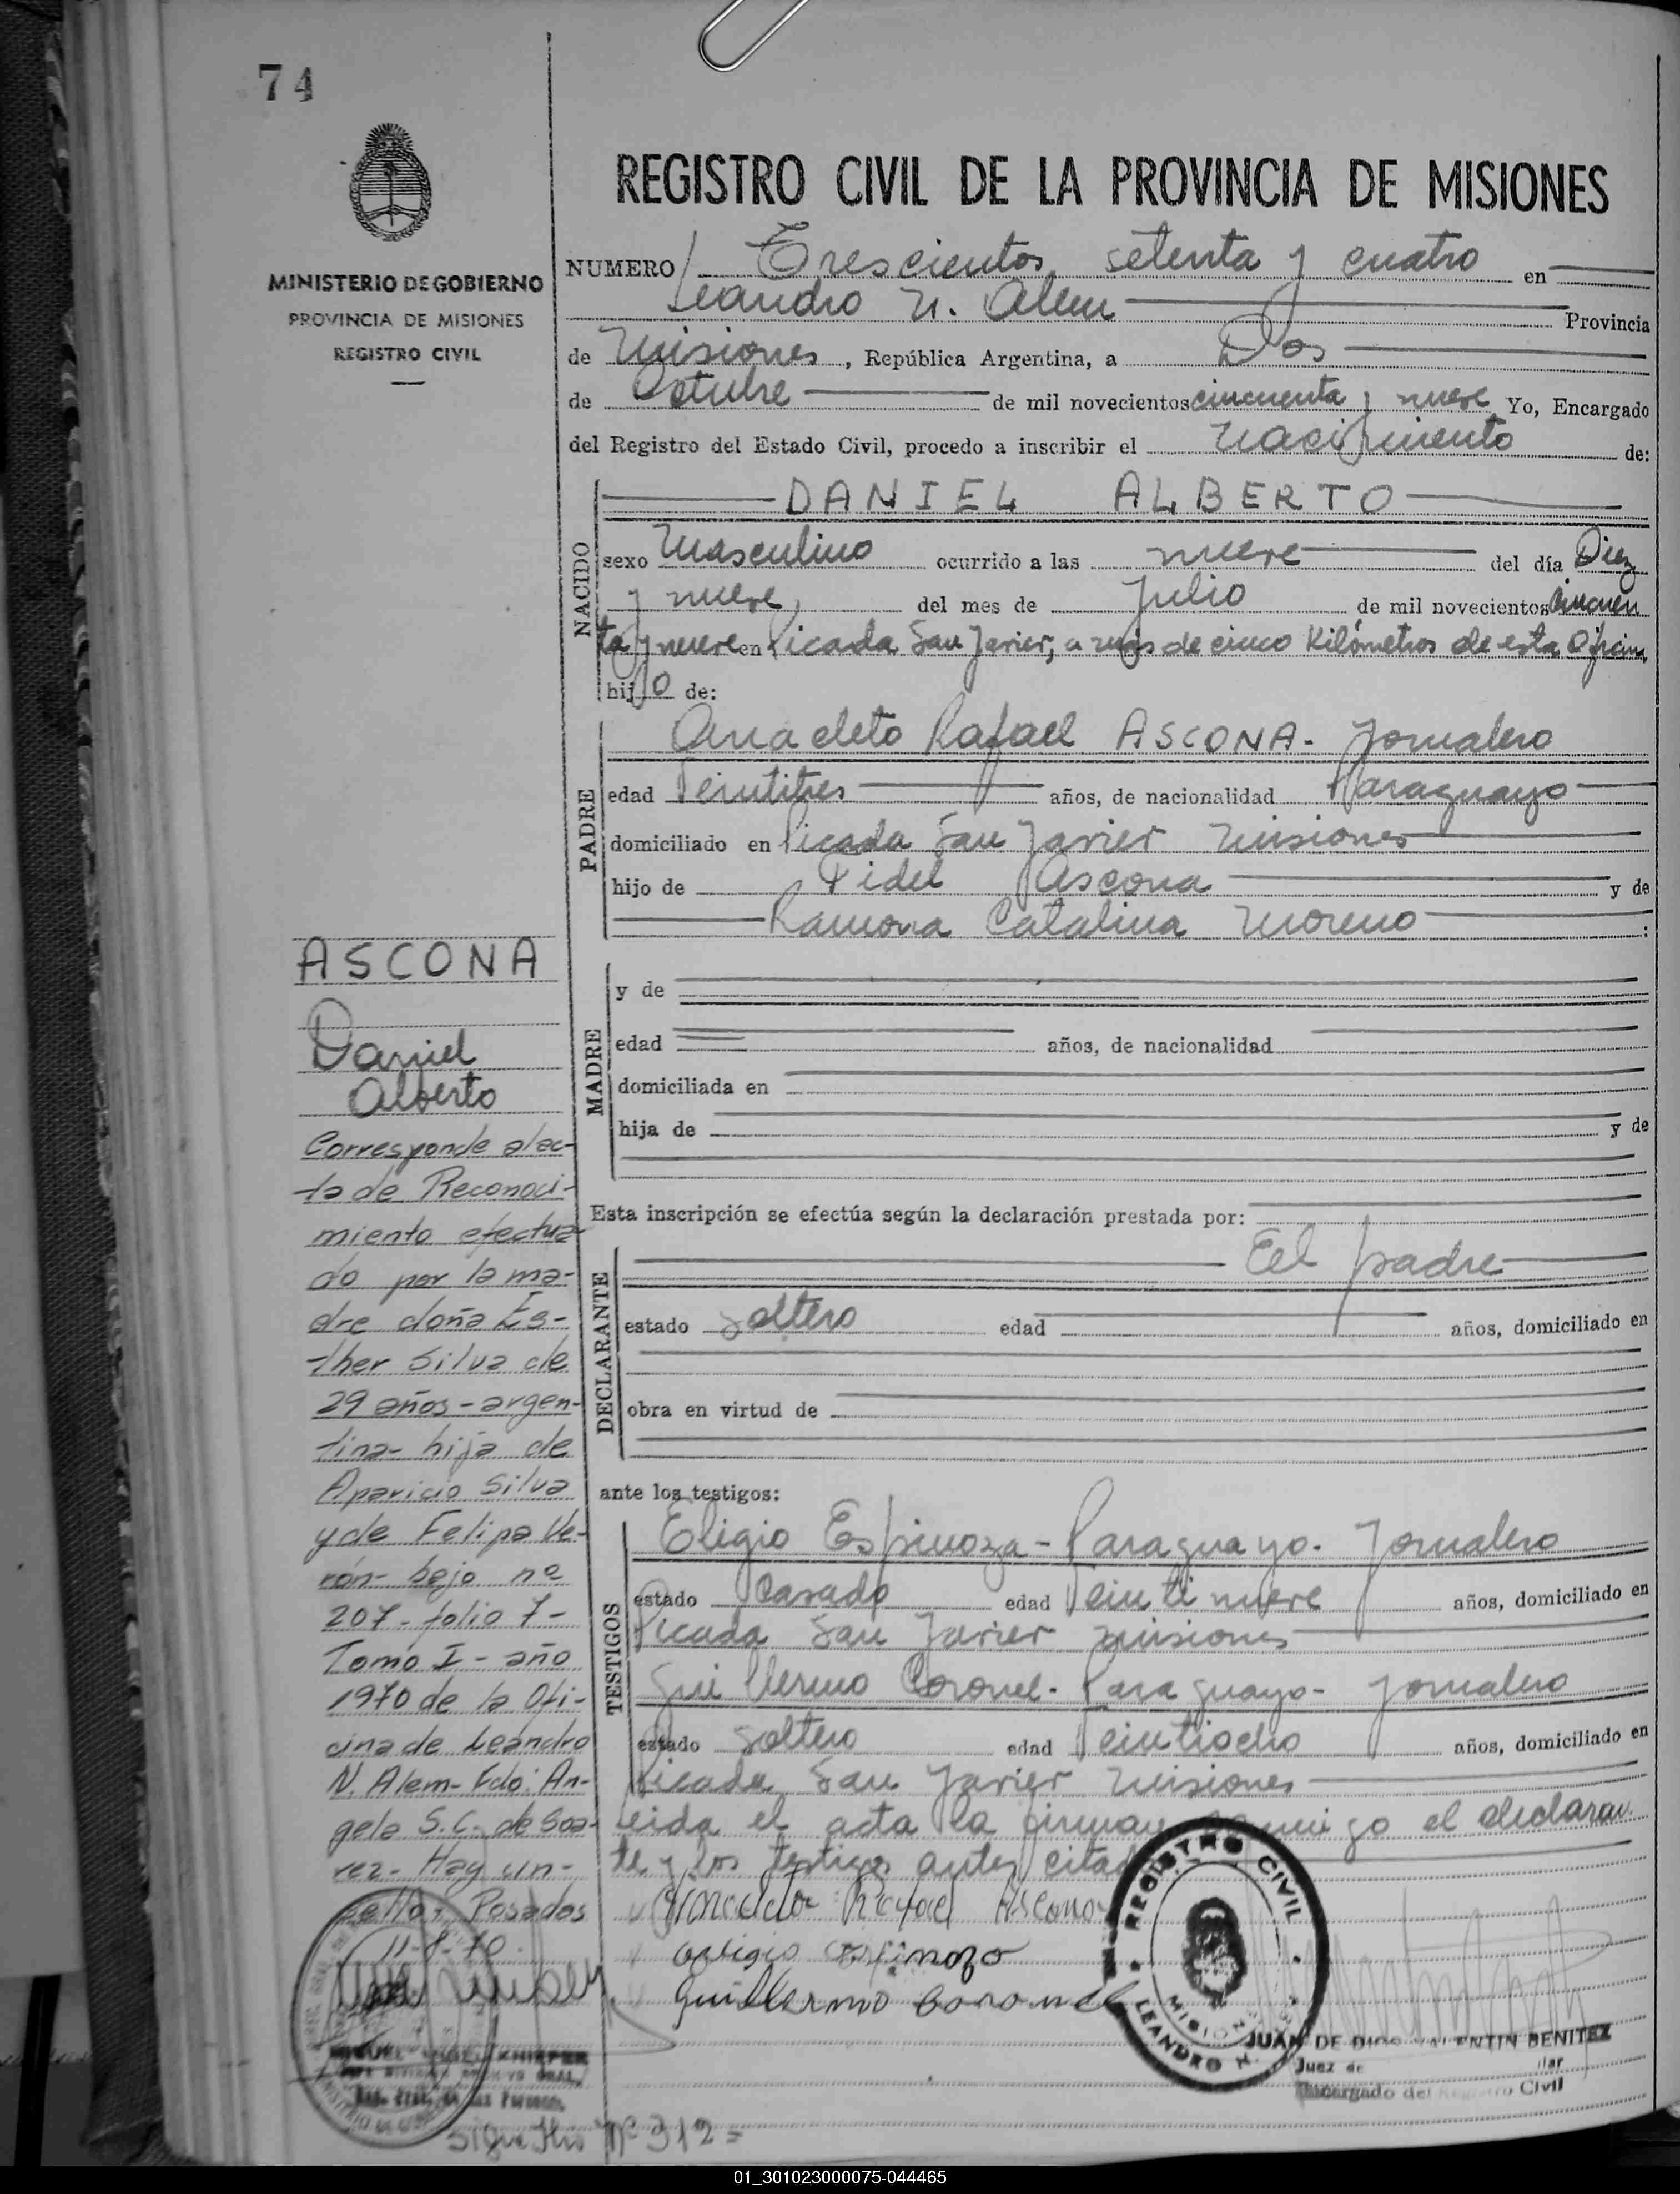 74
MINISTERIO DE GOBIERNO
PROVINCIA DE MISIONES
REGISTRO CIVIL
REGISTRO CIVIL DE LA PROVINCIA DE MISIONES
NUMERO Trescientos setenta y cuatro en
Leandro N. Alem Provincia
de Misiones, República Argentina, a Dos
de Octubre de mil novecientos cincuenta y nueve Yo, Encargado
del Registro del Estado Civil, procedo a inscribir el nacimiento de:
NACIDO
DANIEL ALBERTO
sexo Masculino ocurrido a las nueve del día Diez
y nueve, del mes de Julio de mil novecientos cincuen
ta y nueve en Picada San Javier, a más de cinco Kilómetros de esta Oficina
hijo de:
PADRE
Anacleto Rafael ASCONA - Jornalero
edad Veintitres años, de nacionalidad Paraguayo
domiciliado en Picada San Javier Misiones
hijo de Fidel Ascona y de
Ramona Catalina Moreno :
MADRE
y de
edad años, de nacionalidad
domiciliada en
hija de y de
Esta inscripción se efectúa según la declaración prestada por:
DECLARANTE
El padre
estado soltero edad años, domiciliado en
obra en virtud de
ante los testigos:
TESTIGOS
Eligio Espinoza - Paraguayo - Jornalero
estado Casado edad Veintinueve años, domiciliado en
Picada San Javier Misiones
Guillermo Coronel - Paraguayo - Jornalero
estado soltero edad Veintiocho años, domiciliado en
Picada San Javier Misiones
Leida el acta la firman conmigo el declaran
te y los testigos antes citados
Rafael Ascona
Eligio Espinoza
Guillermo Coronel
REGISTRO CIVIL
MISIONES
LEANDRO N.
JUAN DE DIOS VALENTIN BENITEZ
Juez de
Encargado del Registro Civil
ASCONA
Daniel
Alberto
Corresponde al ac-
ta de Reconoci-
miento efectua
do por la ma-
dre doña Es-
ther Silva de
29 años - argen-
tina - hija de
Aparicio Silva
y de Felipa Ve-
rón - bajo nº
207 - folio 7 -
Tomo I - año
1970 de la Ofi-
cina de Leandro
N. Alem - Fdo: An-
gela S.C. de Soa-
rez - Hay un -
sello. Posadas
11-8-70.
Nº 312 =
01_301023000075-044465